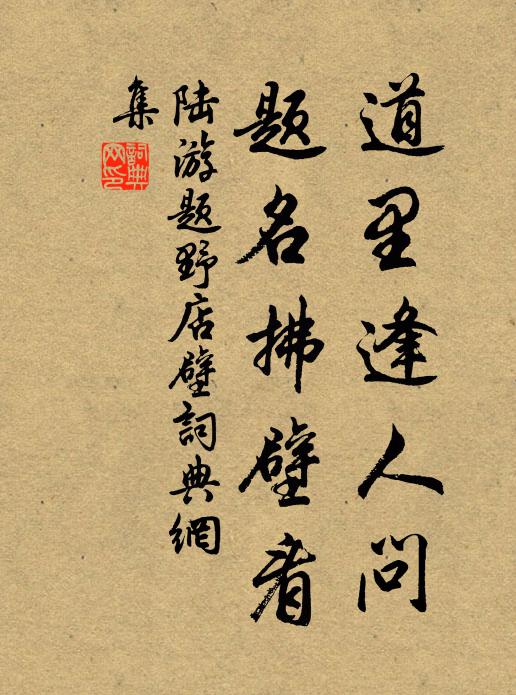 道里逢人问
题名拂壁看
陆游题野店壁詞典網
集
詞典
网印